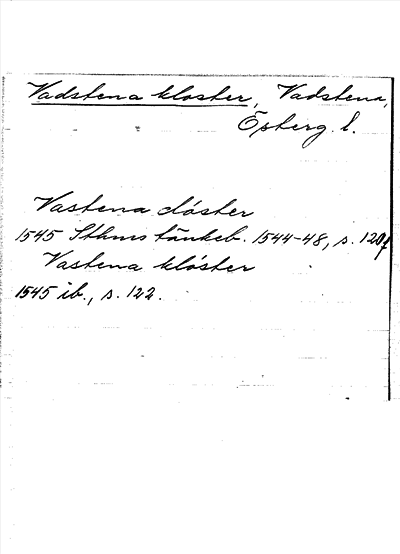 Vadstena kloster, Vadstena,
Österg. l.
Vastena clöster
1545 Sthms tänkeb. 1544-48, s. 120f
Vastena klöster
1545 ib., s. 122.